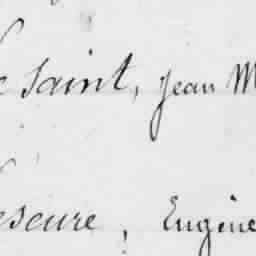 Saint, Jean M
escure, Eugène